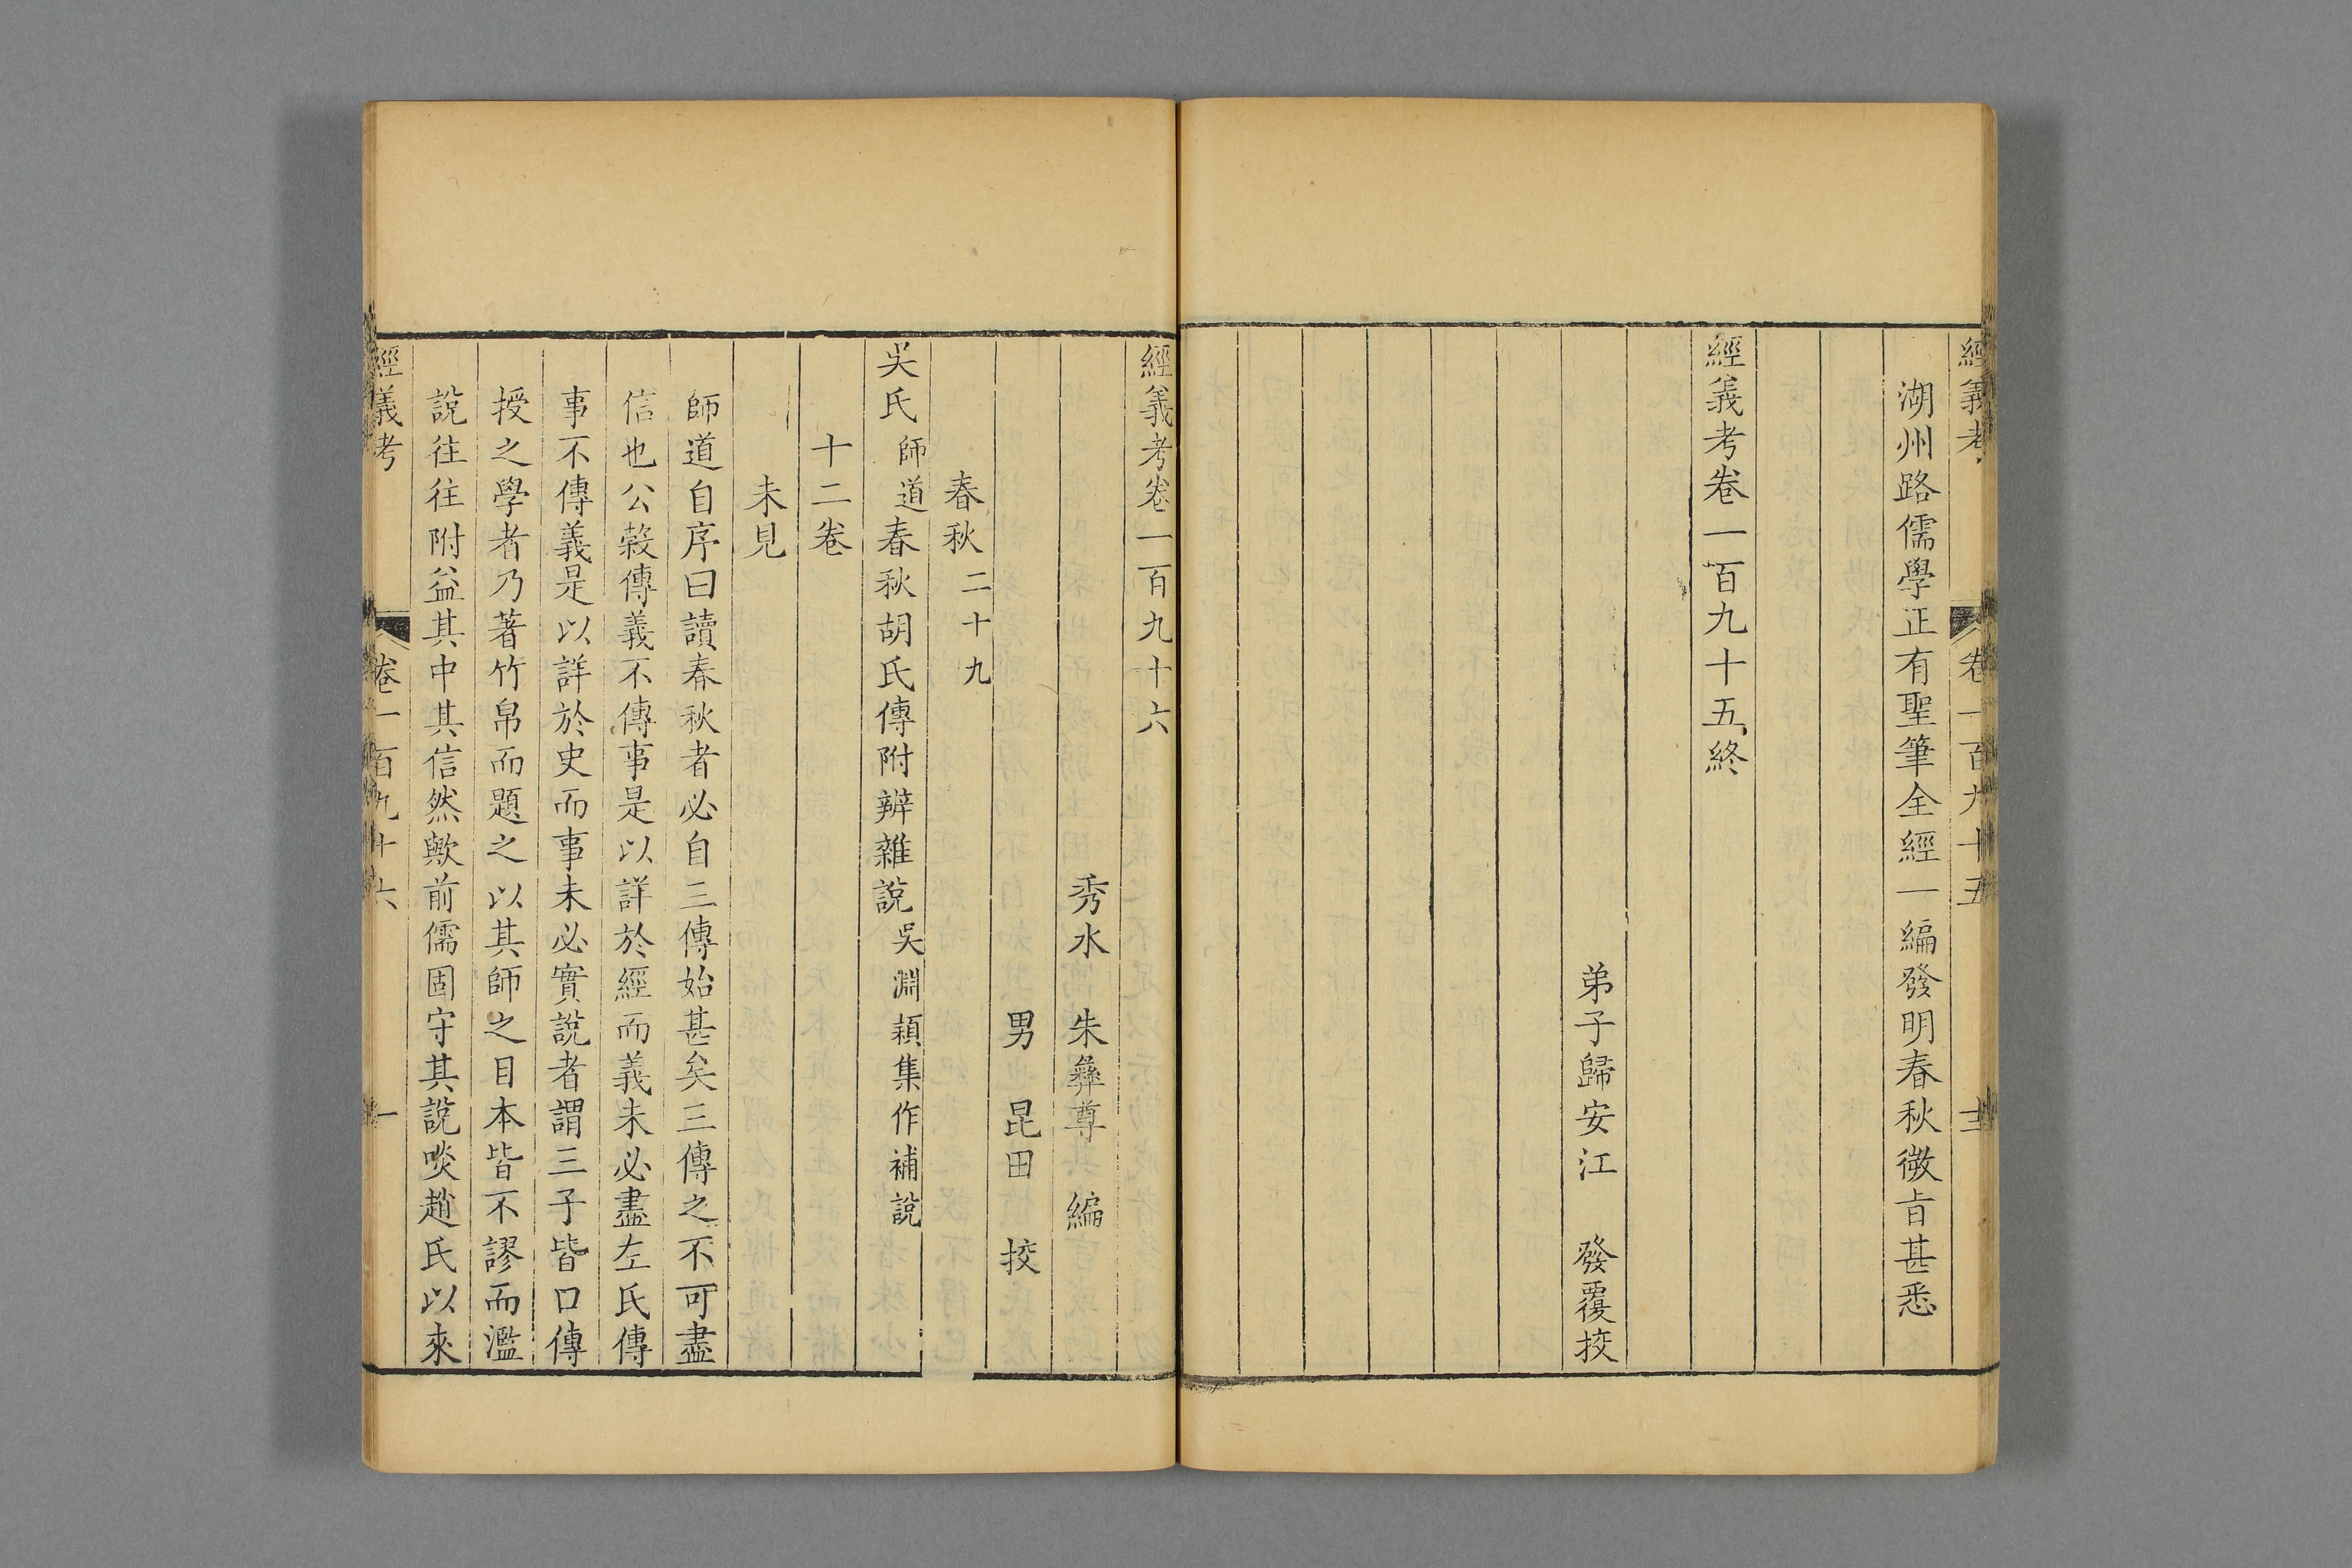 經義考 卷一百九十五 十三
湖州路儒學正有聖筆全經一編發明春秋微旨甚悉
經義考卷一百九十五終
弟子歸安江 發覆挍
經義考卷一百九十六
秀水 朱彝尊 編
男 昆田 挍
春秋二十九
吳氏師道春秋胡氏傳附辨雜說吳淵穎集作補說
十二卷
未見
師道自序曰讀春秋者必自三傳始甚矣三傳之不可盡
信也公榖傳義不傳事是以詳於經而義未必盡左氏傳
事不傳義是以詳於史而事未必實說者謂三子皆口傳
授之學者乃著竹帛而題之以其師之目本皆不謬而濫
說往往附益其中其信然歟前儒固守其說啖趙氏以來
經義考 卷一百九十六 一